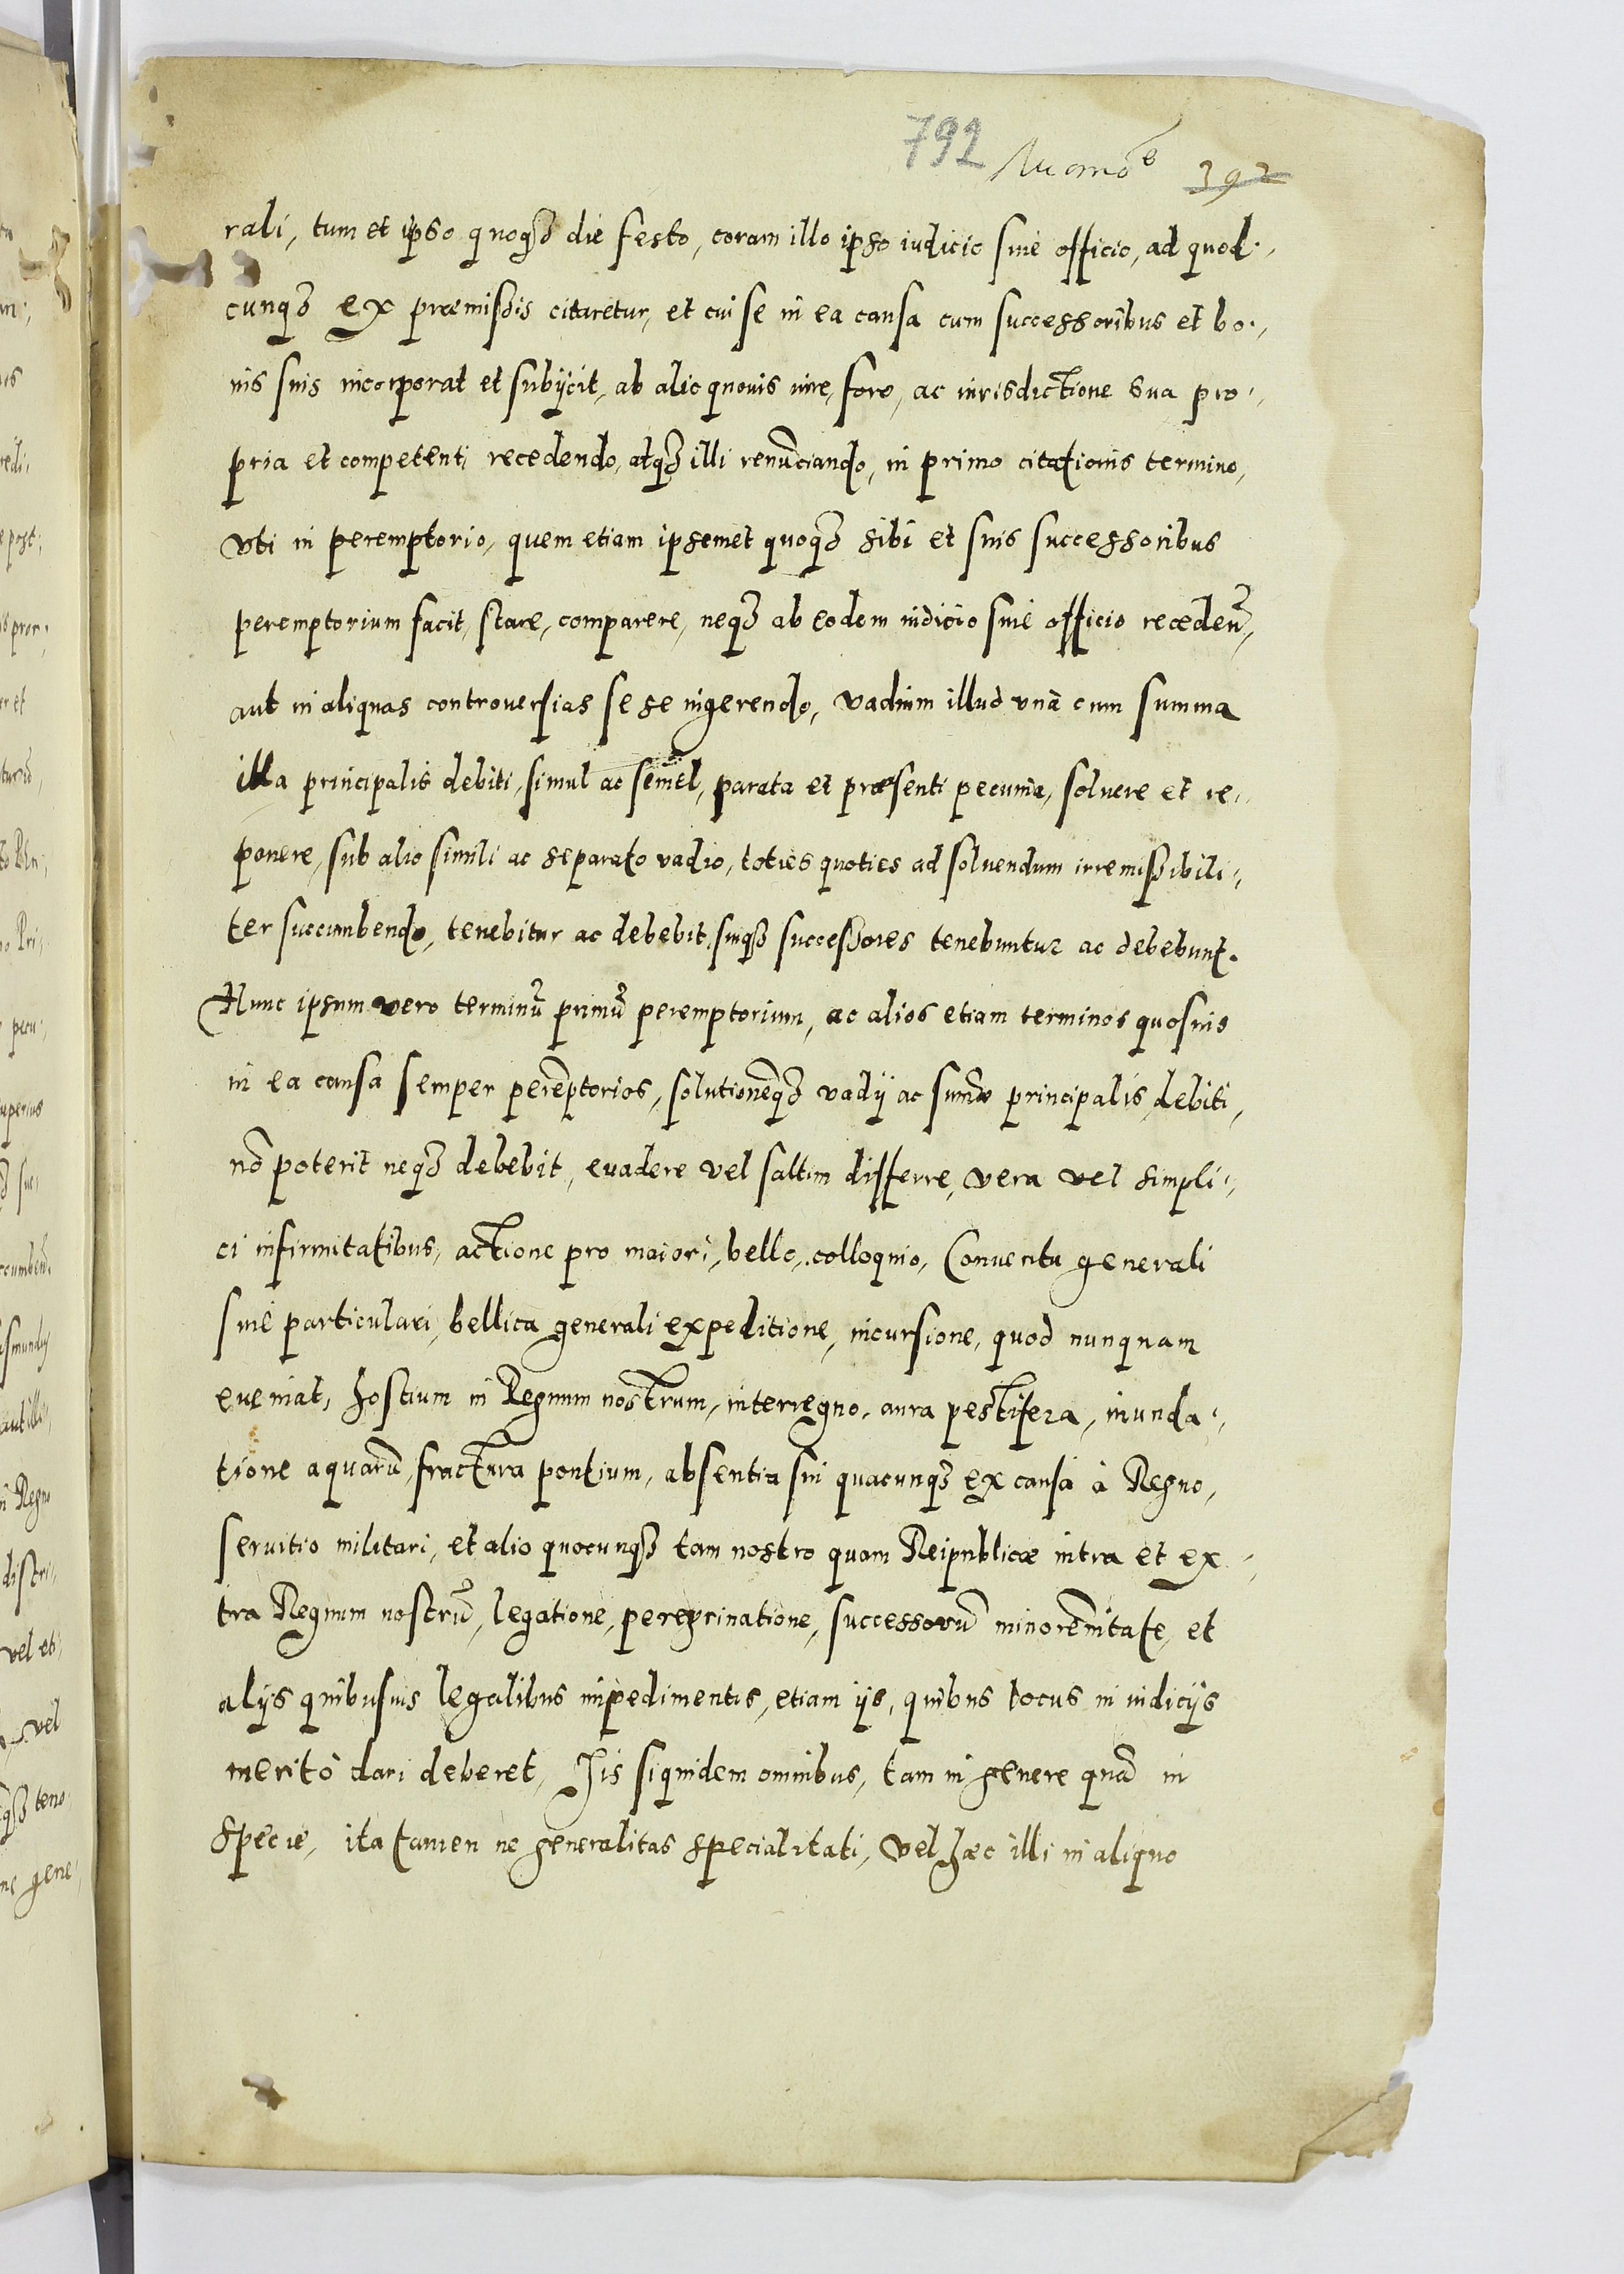 792 392
rali, tum et ipso quoq₃ die festo, coram illo ipso iudicio siue officio, ad quod
cunq₃ ex præmissis citaretur, et cui se in ea causa cum successoribus et bo
nis suis incorporat et subijcit, ab alio quouis iure, foro, ac iurisdictione sua pro
pria et competenti recedendo, atq₃ illi renunciando, in primo citationis termino,
vti in peremptorio, quem etiam ipsemet quoq₃ sibi et suis successoribus
peremptorium facit, stare, comparere, neq₃ ab eodem iudicio siue officio recedeñ,
aut in aliquas controuersias se se ingerendo, vadium illud vnà cum summa
illa principalis debiti, simul ac semel, parata et præsenti pecunia, soluere et re
ponere, sub alio simili ac separato vadio, toties quoties ad soluendum irremissibili
ter succumbendo, tenebitur ac debebit, suiq₃ successores tenebuntur ac debebunt.
Hunc ipsum vero terminũ primũ peremptorium, ac alios etiam terminos quosuis
in ea causa semper perẽptorios, solutionẽq₃ vadij ac sum̃æ principalis debiti,
nõ poterit neq₃ debebit, euadere vel saltim differre, vera vel simpli
ci infirmitatibus, actione pro maiori, bello, colloquio, Conuentu generali
siue particulari, bellica generali expeditione, incursione, quod nunquam
eueniat, hostium in Regnum nostrum, interregno, aura pestifera, inunda
tione aquarũ, fractura pontium, absentia sui quacunq₃ ex causa à Regno,
seruitio militari, et alio quocunq₃ tam nostro quam Reipublicæ intra et ex
tra Regnum nostrũ, legatione, peregrinatione, successorũ minorẽnitate, et
alijs quibusuis legalibus impedimentis, etiam ijs, quibus locus in iudicijs
meritò dari deberet, His siquidem omnibus, tam in genere quã in
specie, ita tamen ne generalitas specialitati, vel hæc illi in aliquo